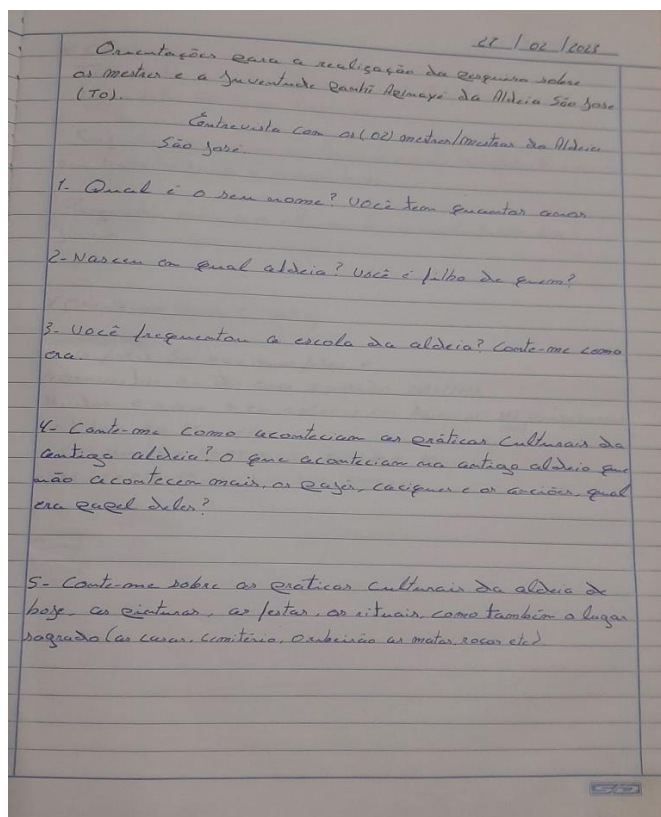 27 / 02 / 2023
Orientações para a realização da pesquisa sobre
os mestres e a Juventude Panhĩ Apinayé da Aldeia São José
(TO).
Entrevista com os (02) mestres/mestras da Aldeia
São José.
1- Qual é o seu nome? Você tem quantos anos
2- Nasceu em qual aldeia? Você é filho de quem?
3- Você frequentou a escola da aldeia? Conte-me como
era.
4- Conte-me como aconteciam as práticas culturais da
antiga aldeia? O que aconteciam na antiga aldeia que
não acontecem mais, os pajés, caciques e os anciões, qual
era papel deles?
5- Conte-me sobre as práticas culturais da aldeia de
hoje, as pinturas, as festas, os rituais, como também o lugar
sagrado (as casas, cemitério, o ribeirão as matas, roças etc)